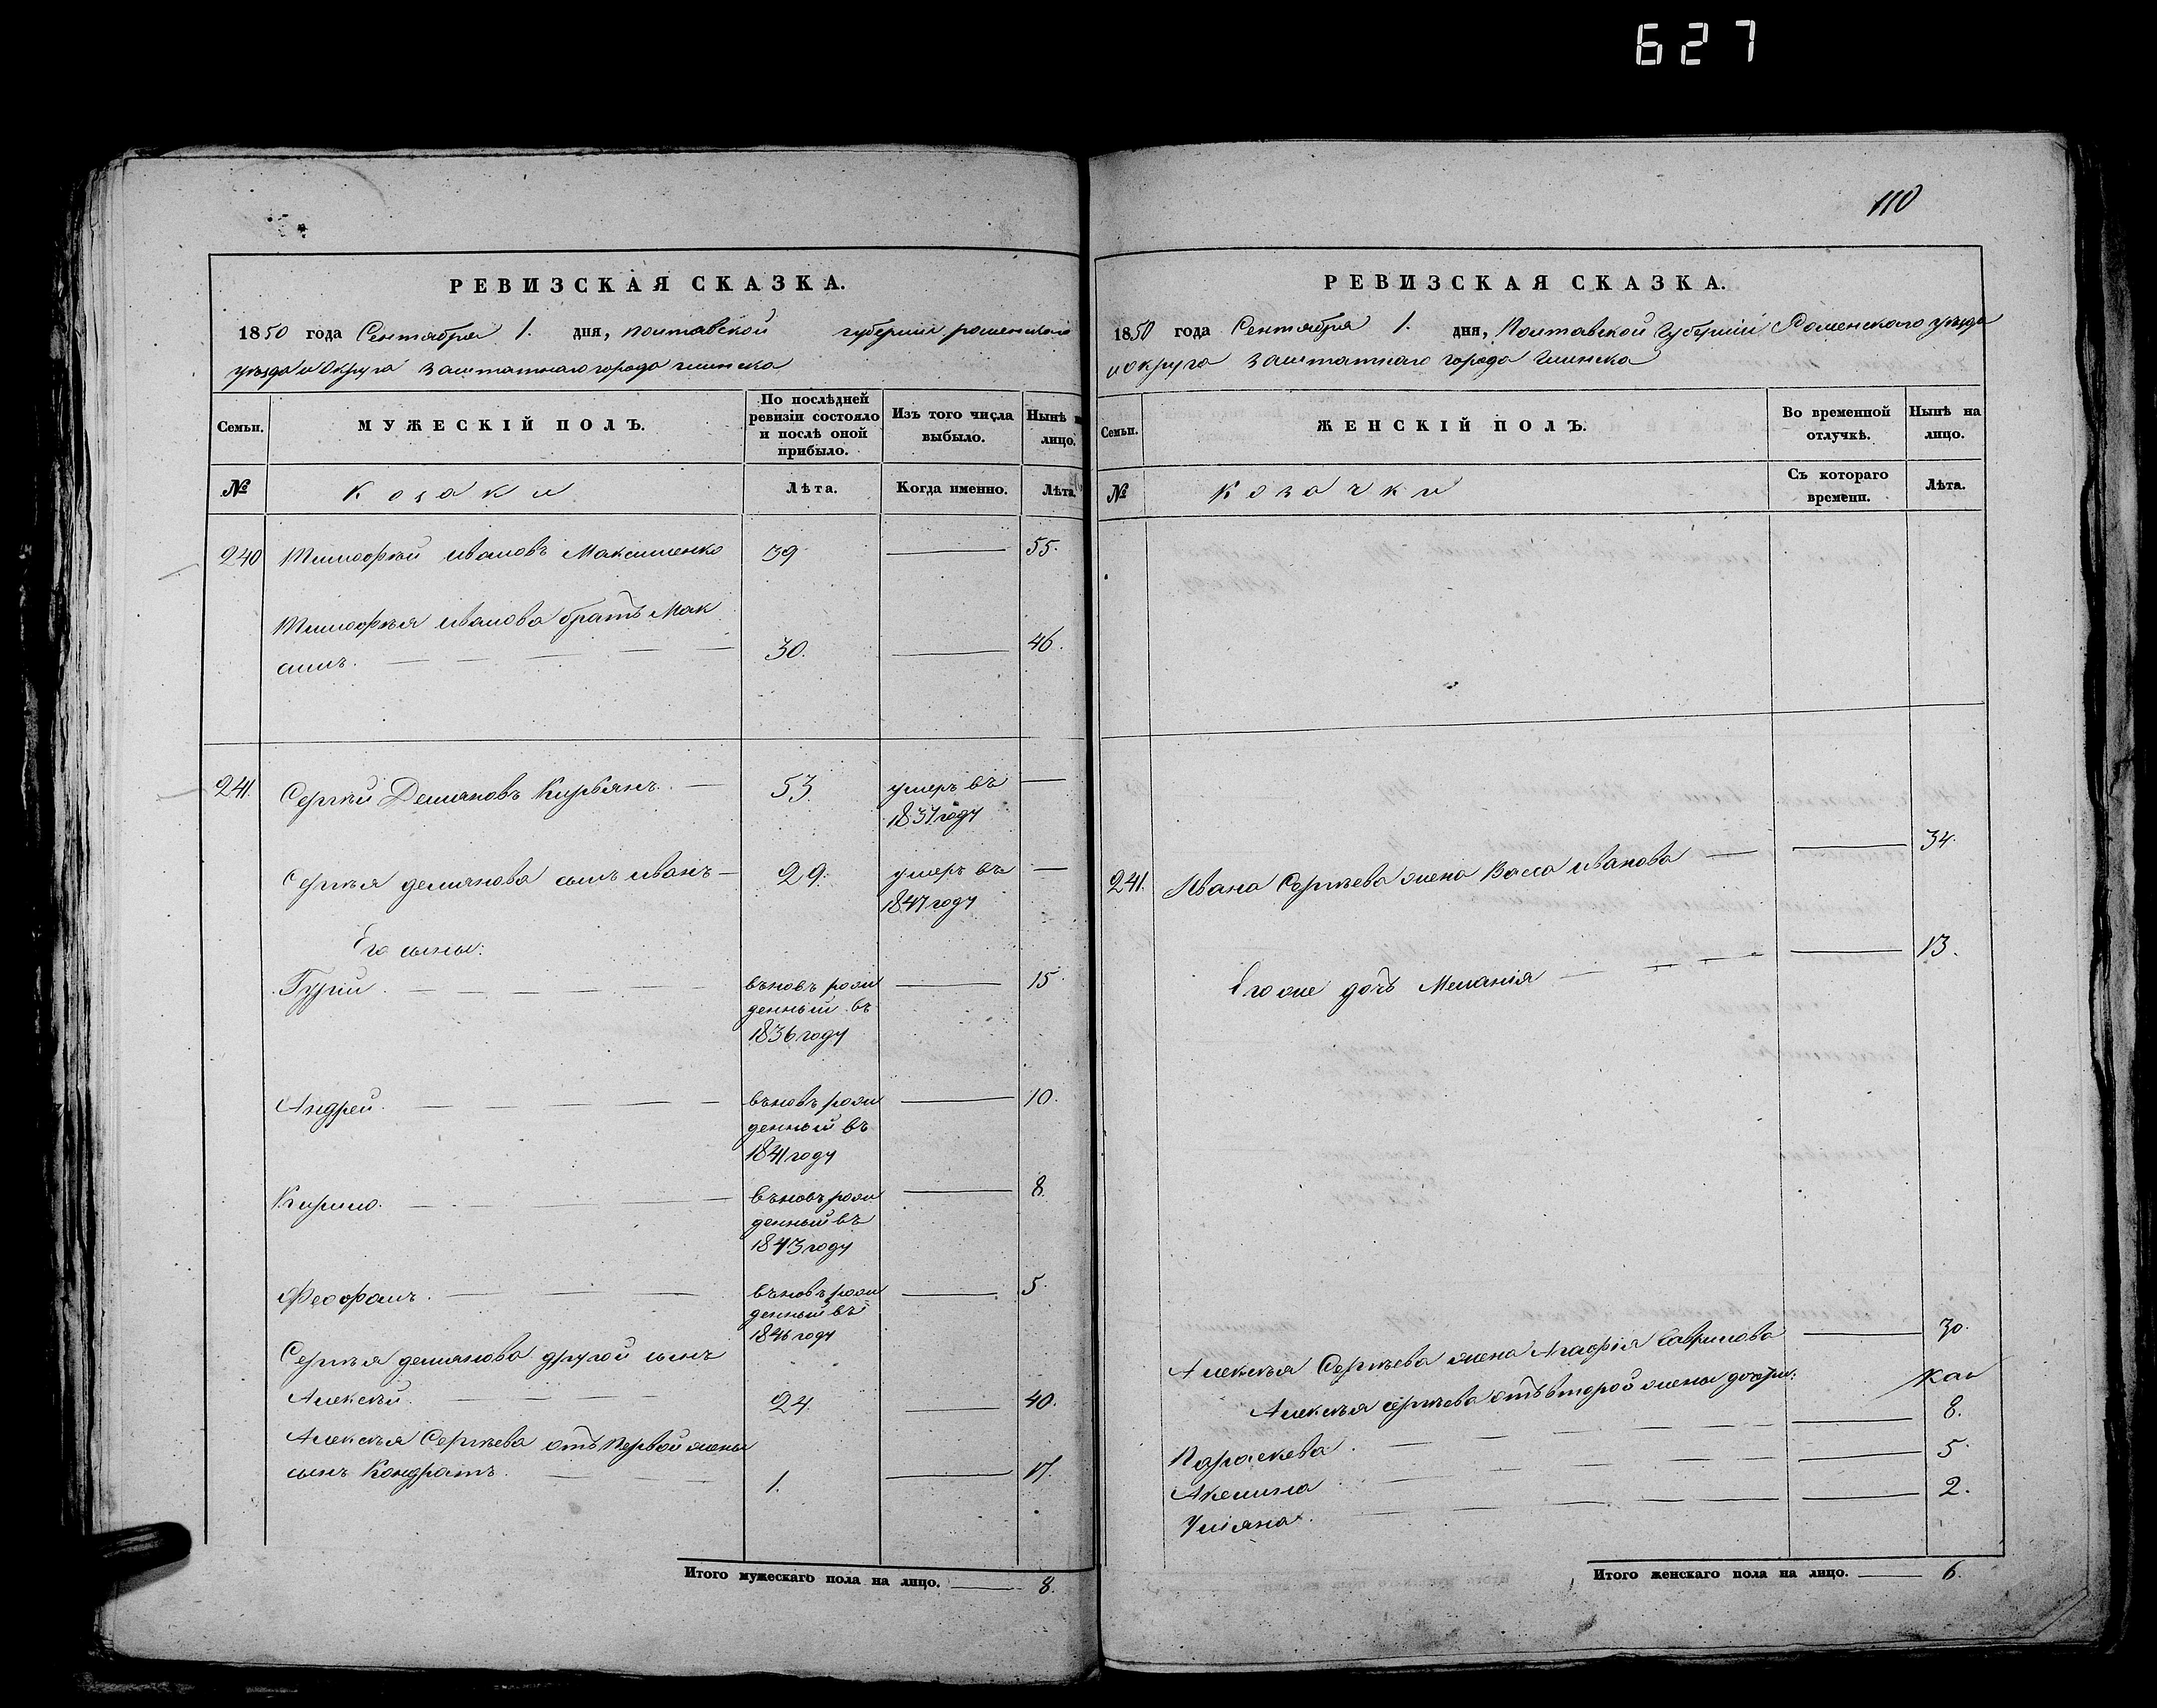 627
110
РЕВИЗСКАЯ СКАЗКА.
1850 года Сентября 1. дня, полтавской губернии роменскаго
уѣзда и Округа заштатнаго города глинска
Семьи.
МУЖЕСКІЙ ПОЛЪ.
По послѣдней ревизіи состояло и послѣ оной прибыло.
Изъ того числа выбыло.
Нынѣ на лицо.
№
Козаки
Лѣта.
Когда именно.
Лѣта.
240 Тимофѣй ивановъ Максименко 39 — 55.
Тимофѣя иванова братъ Мак
симъ. 30. — 46.
241. Сергѣй Демяновъ Кирьянъ. — 53. умеръ въ —
1837 году
Сергѣя демянова сынъ иванъ — 29. умеръ въ —
1847 году
Его сыны:
Гурій. въновь рож — 15.
денный въ
1836 году
Андрей. въновь рож — 10.
денный въ
1841 году
Кирило. въновь рож — 8.
денный въ
1843 году
Феофанъ. въновь рож — 5.
денный въ
1846 году
Сергѣя демянова другой сынъ
Алексѣй. 24. — 40.
Алексѣя Сергѣева отъ первой жены
сынъ Кондратъ. 1. — 17.
Итого мужескаго пола на лицо. — 8.
РЕВИЗСКАЯ СКАЗКА.
1850 года Сентября 1. дня, Полтавской Губерніи Роменскаго уѣзда
и округа заштатнаго города Глинска
Семьи.
ЖЕНСКІЙ ПОЛЪ.
Во временной отлучкѣ.
Нынѣ на лицо.
№
Козачки
Съ котораго времени.
Лѣта.
241. Ивана Сергѣева жена Васса иванова — 34.
Его же дочь Меланія — 13.
Алексѣя Сергѣева жена Агафія Гаврилова — 30.
Алексѣя сергѣева отъ второй жены дочери:
Параскева. — 8.
Акелина — 5.
Уліяна. — 2.
Итого женскаго пола на лицо. — 6.